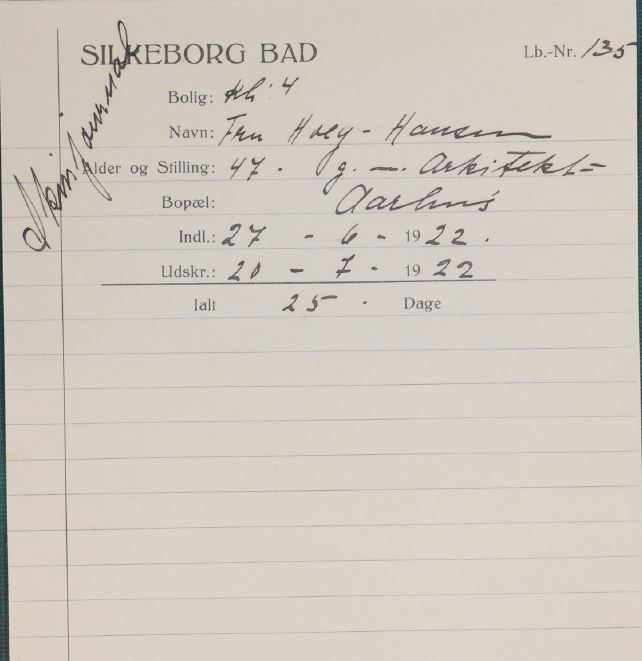 SILKEBORG BAD
Lb.-Nr. 135
Bolig: Kl: 4
Navn: Fru Høeg - Hansen
Alder og Stilling: 47. g. — Arkitekt=
Bopæl: Aarhus
Indl.: 27 - 6 - 1922.
Udskr.: 20 - 7 - 1922
Ialt 25 . Dage